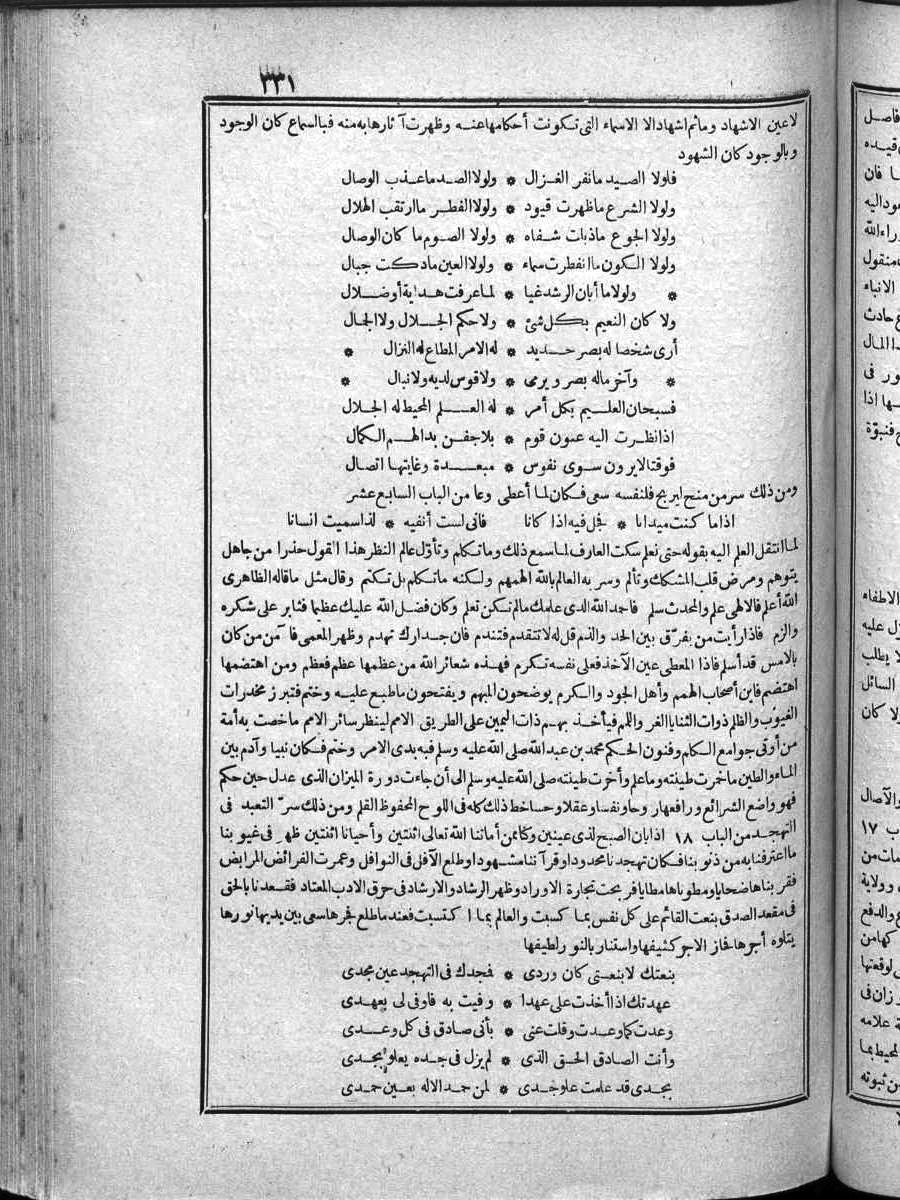 ٣٣١
لاعين الاشهاد وماثم اشهاد الا الاسماء التى تكونت أحكامها عنه وظهرت آثارها به منه فبالسماع كان الوجود
وبالوجود كان الشهود
فلولا الصيد مانفر الغزال * ولولا الصد ماعذب الوصال
ولولا الشرع ماظهرت قيود * ولولا الفطر ماارتقب الهلال
ولولا الجوع ماذبلت شفاه * ولولا الصوم ما كان الوصال
ولولا الكون ماانفطرت سماء * ولولا العين مادكت جبال
* ولولا ما أبان الرشد غيا * لما عرفت هداية أو ضلال
ولا كان النعيم بكل شئ * ولا حكم الجلال ولا الجمال
أرى شخصا له بصر حديد * له الامر المطاع له النزال *
* وآخر ماله بصر ويرمى * ولا قوس لديه ولا نبال *
فسبحان العليم بكل أمر * له العلم المحيط له الجلال
اذا نظرت اليه عيون قوم * بلا جفن بدا لهم الكمال
فوقتا لا يرون سوى نفوس * مبعدة وغايتها اتصال
ومن ذلك سر من منح ليربح فلنفسه سعى فكان لما أعطى وعا من الباب السابع عشر
اذا ما كنت ميدانا * فجل فيه اذا كانا فانى لست أنفيه * لذا سميت انسانا
لما انتقل العلم اليه بقوله حتى نعلم سكت العارف لما سمع ذلك وما تكلم وتأول عالم النظر هذا القول حذرا من جاهل
يتوهم ومرض قلب المشكك وتألم وسر به العالم بالله الهمهم ولكنه ما تكلم بل تكتم وقال مثل ما قاله الظاهرى
الله أعلم فالالهى علم والمحدث سلم فاحمد الله الذى علمك مالم تكن تعلم وكان فضل الله عليك عظيما فثابر على شكره
والزم فاذا رأيت من يفرق بين الحد والذم قل له لا تتقدم فتندم فان جدارك تهدم وظهر المعمى فآمن من كان
بالامس قد أسلم فاذا المعطى عين الآخذ فعلى نفسه تكرم فهذه شعائر الله من عظمها عظم فعظم ومن اهتضمها
اهتضم فاين أصحاب الهمم وأهل الجود والكرم يوضحون المبهم ويفتحون ما طبع عليه وختم فتبرز مخدرات
الغيوب والظلم ذوات الثنايا الغر واللمم فيأخذ بهم ذات اليمين على الطريق الامم لينظر سائر الامم ما خصت به أمة
من أوتى جوامع الكلم وفنون الحكم محمد بن عبد الله صلى الله عليه وسلم فبه بدئ الامر وختم فكان نبيا وآدم بين
الماء والطين ما خمرت طينته وما علم وأخرت طينته صلى الله عليه وسلم الى أن جاءت دورة الميزان الذى عدل حين حكم
فهو واضع الشرائع ورافعها روحا ونفسا وعقلا وحسا خط ذلك كله فى اللوح المحفوظ القلم ومن ذلك سر التعبد فى
التهجد من الباب ١٨ اذا بان الصبح لذى عينين وكنا ممن أماتنا الله تعالى اثنتين وأحيانا اثنتين ظهر فى غيوبنا
ما اعترفنا به من ذنوبنا فكان تهجدنا محدودا وقرآننا مشهودا وطلع الآفل فى النوافل وعمرت الفرائض المرابض
فقربناها ضحايا ومطوناها مطايا فربحت تجارة الاوراد وظهر الرشاد والارشاد فى حرق الادب المعتاد فقعدنا بالحق
فى مقعد الصدق بنعت القائم على كل نفس بما كسبت والعالم بما اكتسبت فعندما طلع فجرها سعى بين يديها نورها
يتلوه أجرها فحاز الاجر كشيفها واستنار بالنور لطيفها
بنعتك لا بنعتى كان وردى * فجدك فى التهجد عين مجدى
عهدتك اذ أخذت على عهدا * وفيت به فاوفى لى بعهدى
وعدت كما وعدت وقلت عنى * بأنى صادق فى كل وعدى
وأنت الصادق الحق الذى * لم يزل فى جده يعلو بمجدى
بمجدى قد علمت علو جدى * لمن حمد الاله بعين حمدى